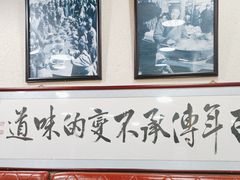 百年傳承不變的味道